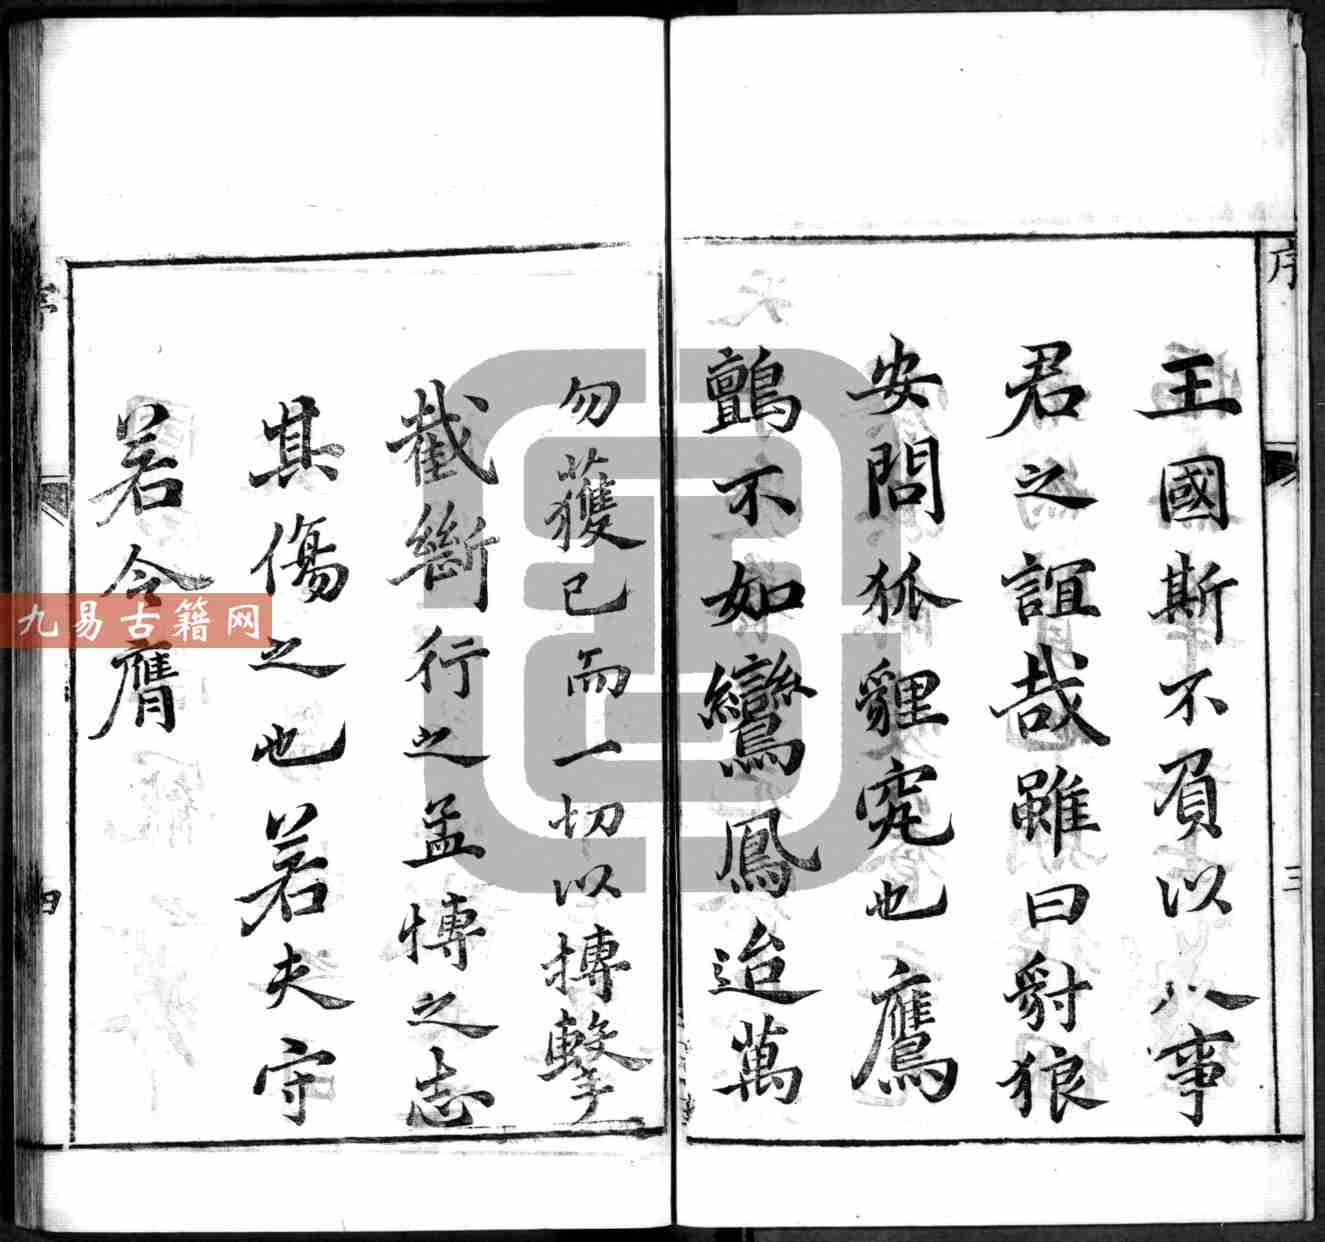 序
三
王國斯不負以人事
君之誼哉雖曰豺狼
安問狐貍究也鷹
鸇不如鸞鳳迨萬
勿獲已而一切以搏擊
截斷行之孟愽之志
其傷之也若夫守
若令膺
四
九易古籍网